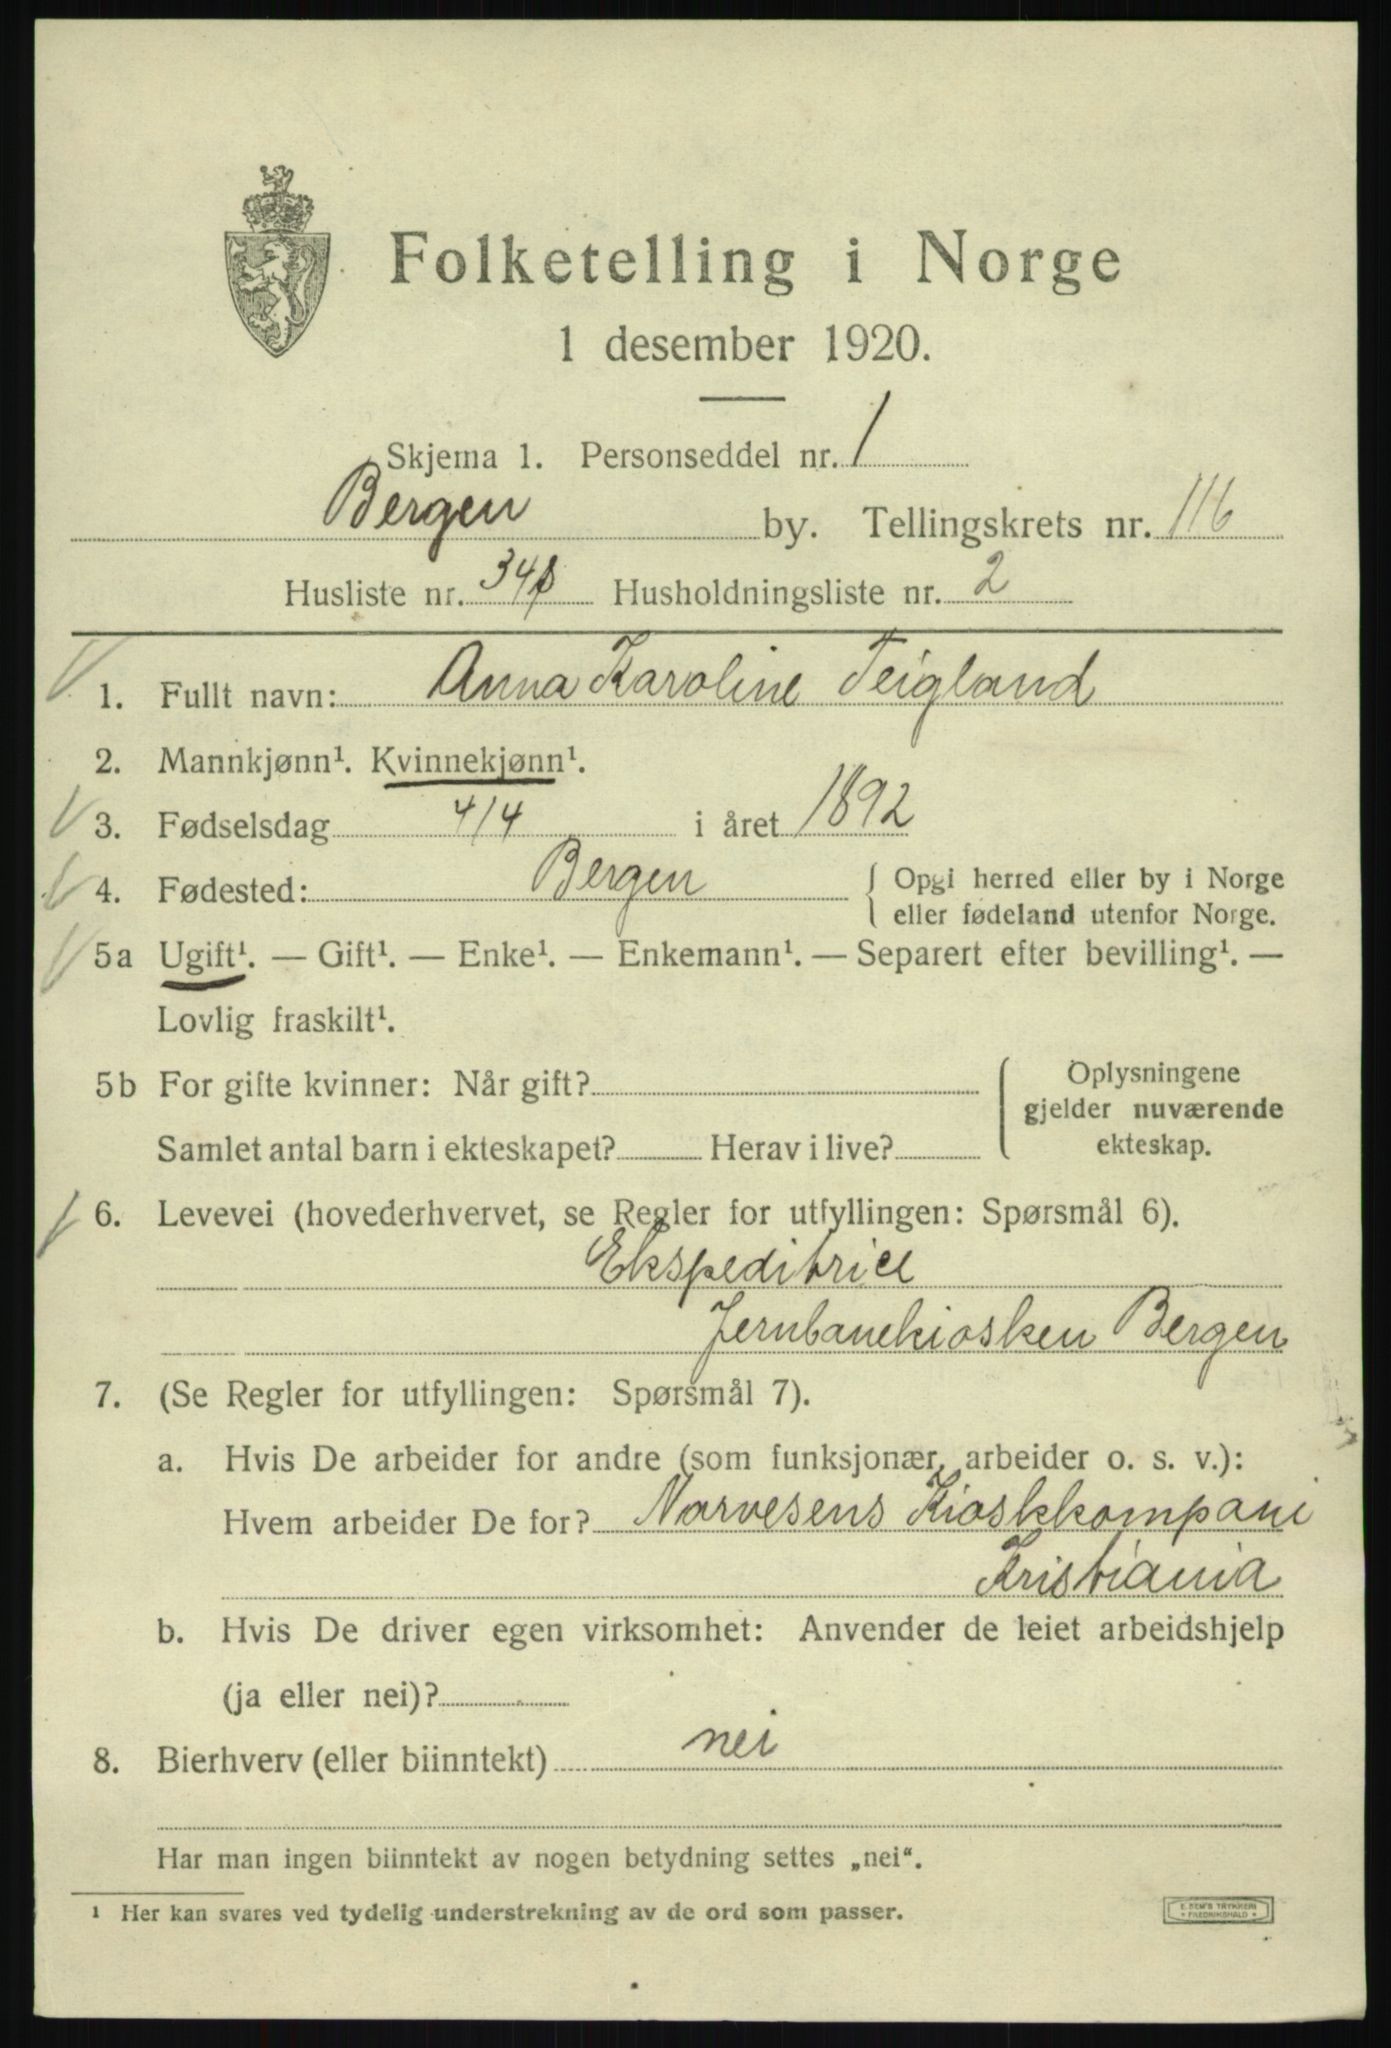 Folketelling i Norge
1 desember 1920.
Skjema 1. Personseddel nr. 1
Bergen by. Tellingskrets nr. 116
Husliste nr. Husholdningsliste nr. 2
1. Fullt navn: Anna Karoline Teigland
2. Mannkjønn¹. Kvinnekjønn¹.
3. Fødselsdag 4/4 i året 1892
4. Fødested: Bergen { Opgi herred eller by i Norge
eller fødeland utenfor Norge.
5a Ugift¹. — Gift¹. — Enke¹. — Enkemann¹. — Separert efter bevilling¹. —
Lovlig fraskilt¹.
5b For gifte kvinner: Når gift? { Oplysningene
gjelder nuværende
Samlet antal barn i ekteskapet? Herav i live? ekteskap.
6. Levevei (hovederhvervet, se Regler for utfyllingen: Spørsmål 6).
Ekspeditrice
Jernbanekiosken Bergen
7. (Se Regler for utfyllingen: Spørsmål 7).
a. Hvis De arbeider for andre (som funksjonær, arbeider o. s. v.):
Hvem arbeider De for? Narvesens Kioskkompani
Kristiania
b. Hvis De driver egen virksomhet: Anvender de leiet arbeidshjelp
(ja eller nei)?
8. Bierhverv (eller biinntekt) nei
Har man ingen biinntekt av nogen betydning settes „nei“.
¹ Her kan svares ved tydelig understrekning av de ord som passer.
E. SEM'S TRYKKERI
FREDRIKSHALD